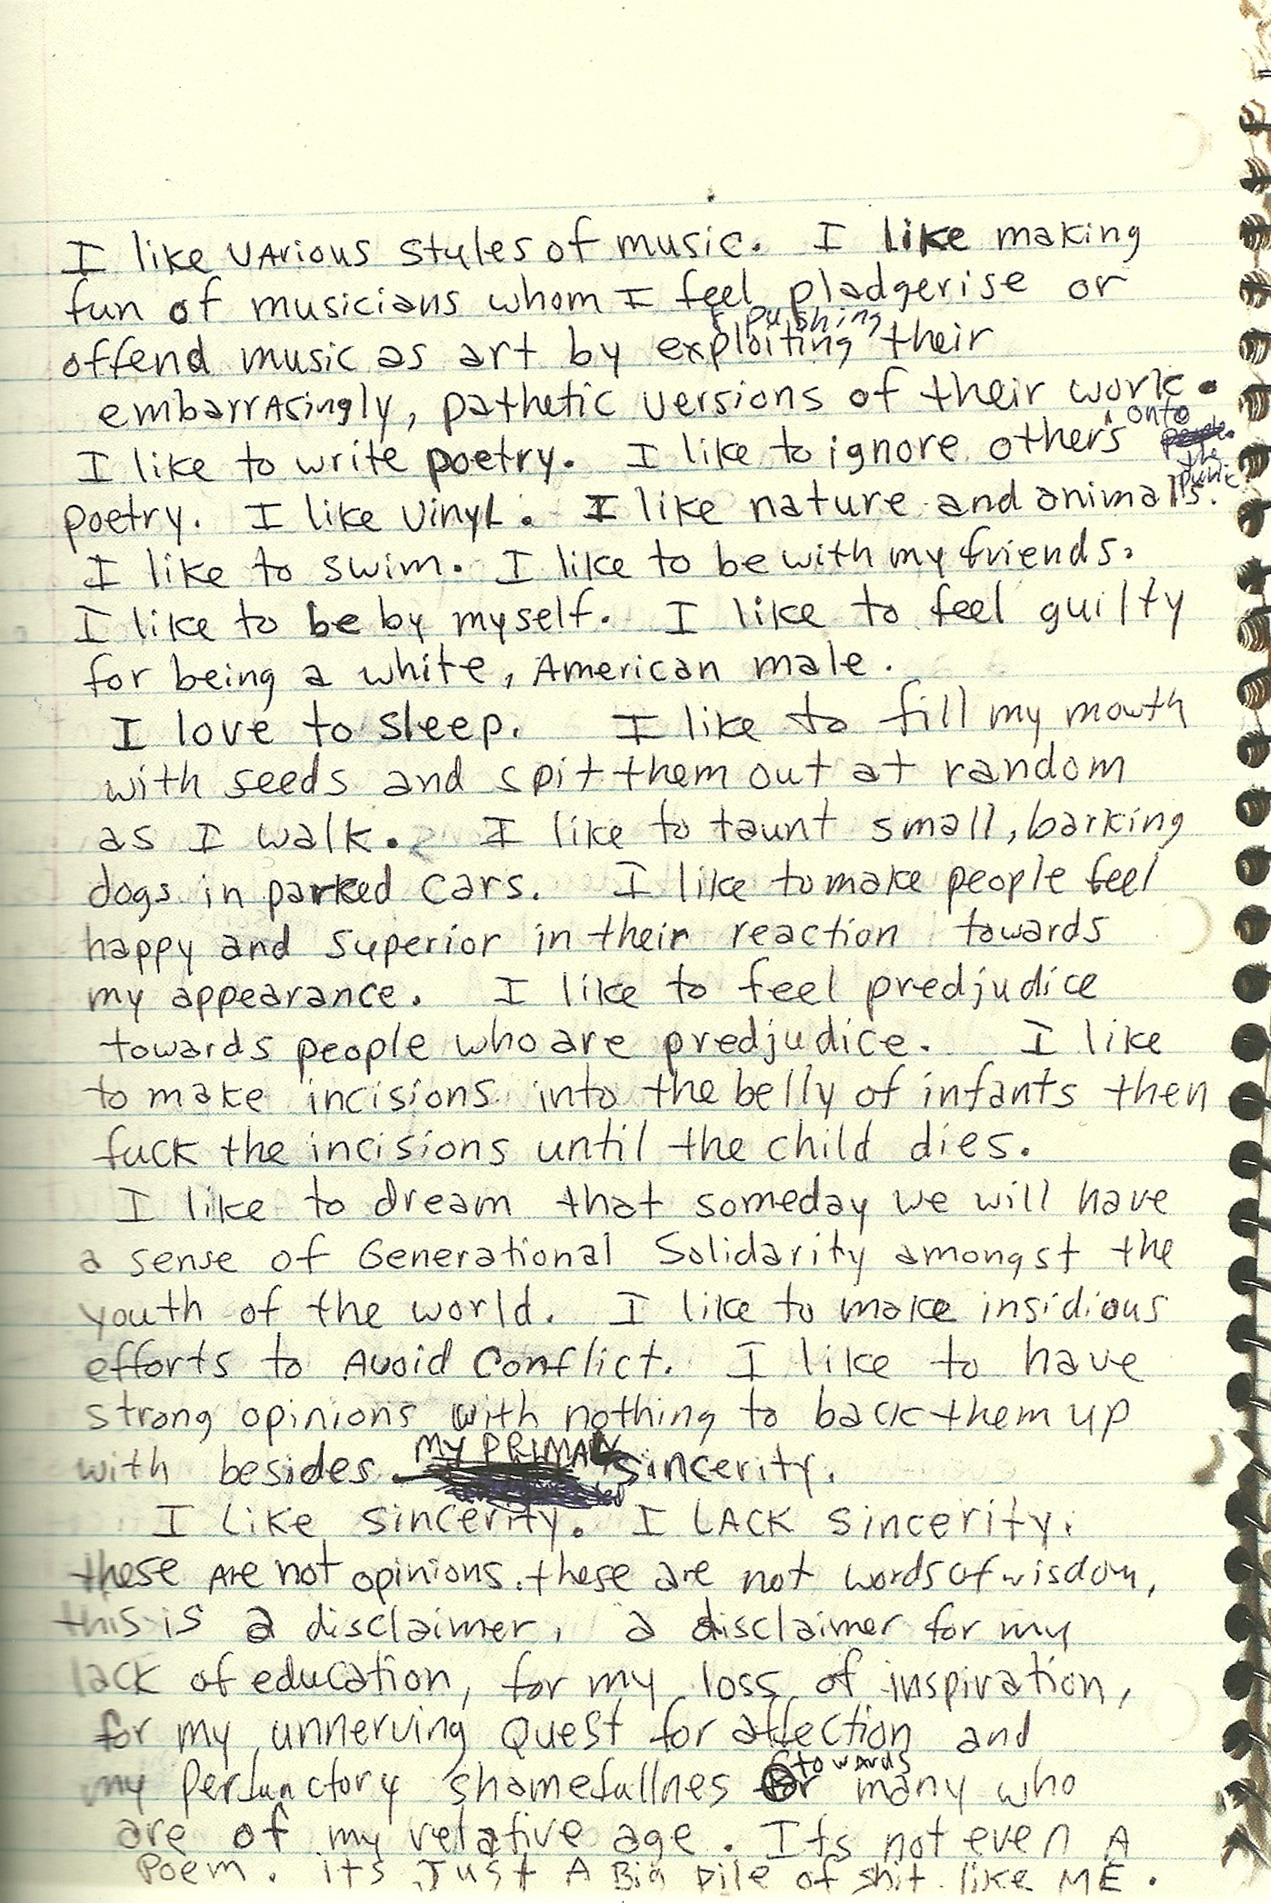 I like VArious styles of music. I like making
fun of musicians whom I feel pladgerise or
& pushing
offend music as art by exploiting their
embarrAsingly, pathetic versions of their work.
onto
I like to write poetry. I like to ignore others
the
public
poetry. I like Vinyl. I like nature and animals.
I like to swim. I like to be with my friends.
I like to be by myself. I like to feel guilty
for being a white, American male.
I love to sleep. I like to fill my mouth
with seeds and spit them out at random
as I walk. I like to taunt small, barking
dogs in parked cars. I like to make people feel
happy and superior in their reaction towards
my appearance. I like to feel predjudice
towards people who are predjudice. I like
to make incisions into the belly of infants then
fuck the incisions until the child dies.
I like to dream that someday we will have
a sense of Generational Solidarity amongst the
youth of the world. I like to make insidious
efforts to Avoid Conflict. I like to have
strong opinions with nothing to back them up
MY PRIMAL
with besides sincerity.
I Like sincerity. I LACK sincerity.
these Are not opinions. these are not words of wisdom,
this is a disclaimer, a disclaimer for my
lack of education, for my loss of inspiration,
for my unnerving quest for affection and
towards
my perfunctory shamefullnes many who
are of my relative age. Its not even A
Poem. its Just A Big pile of shit like ME.